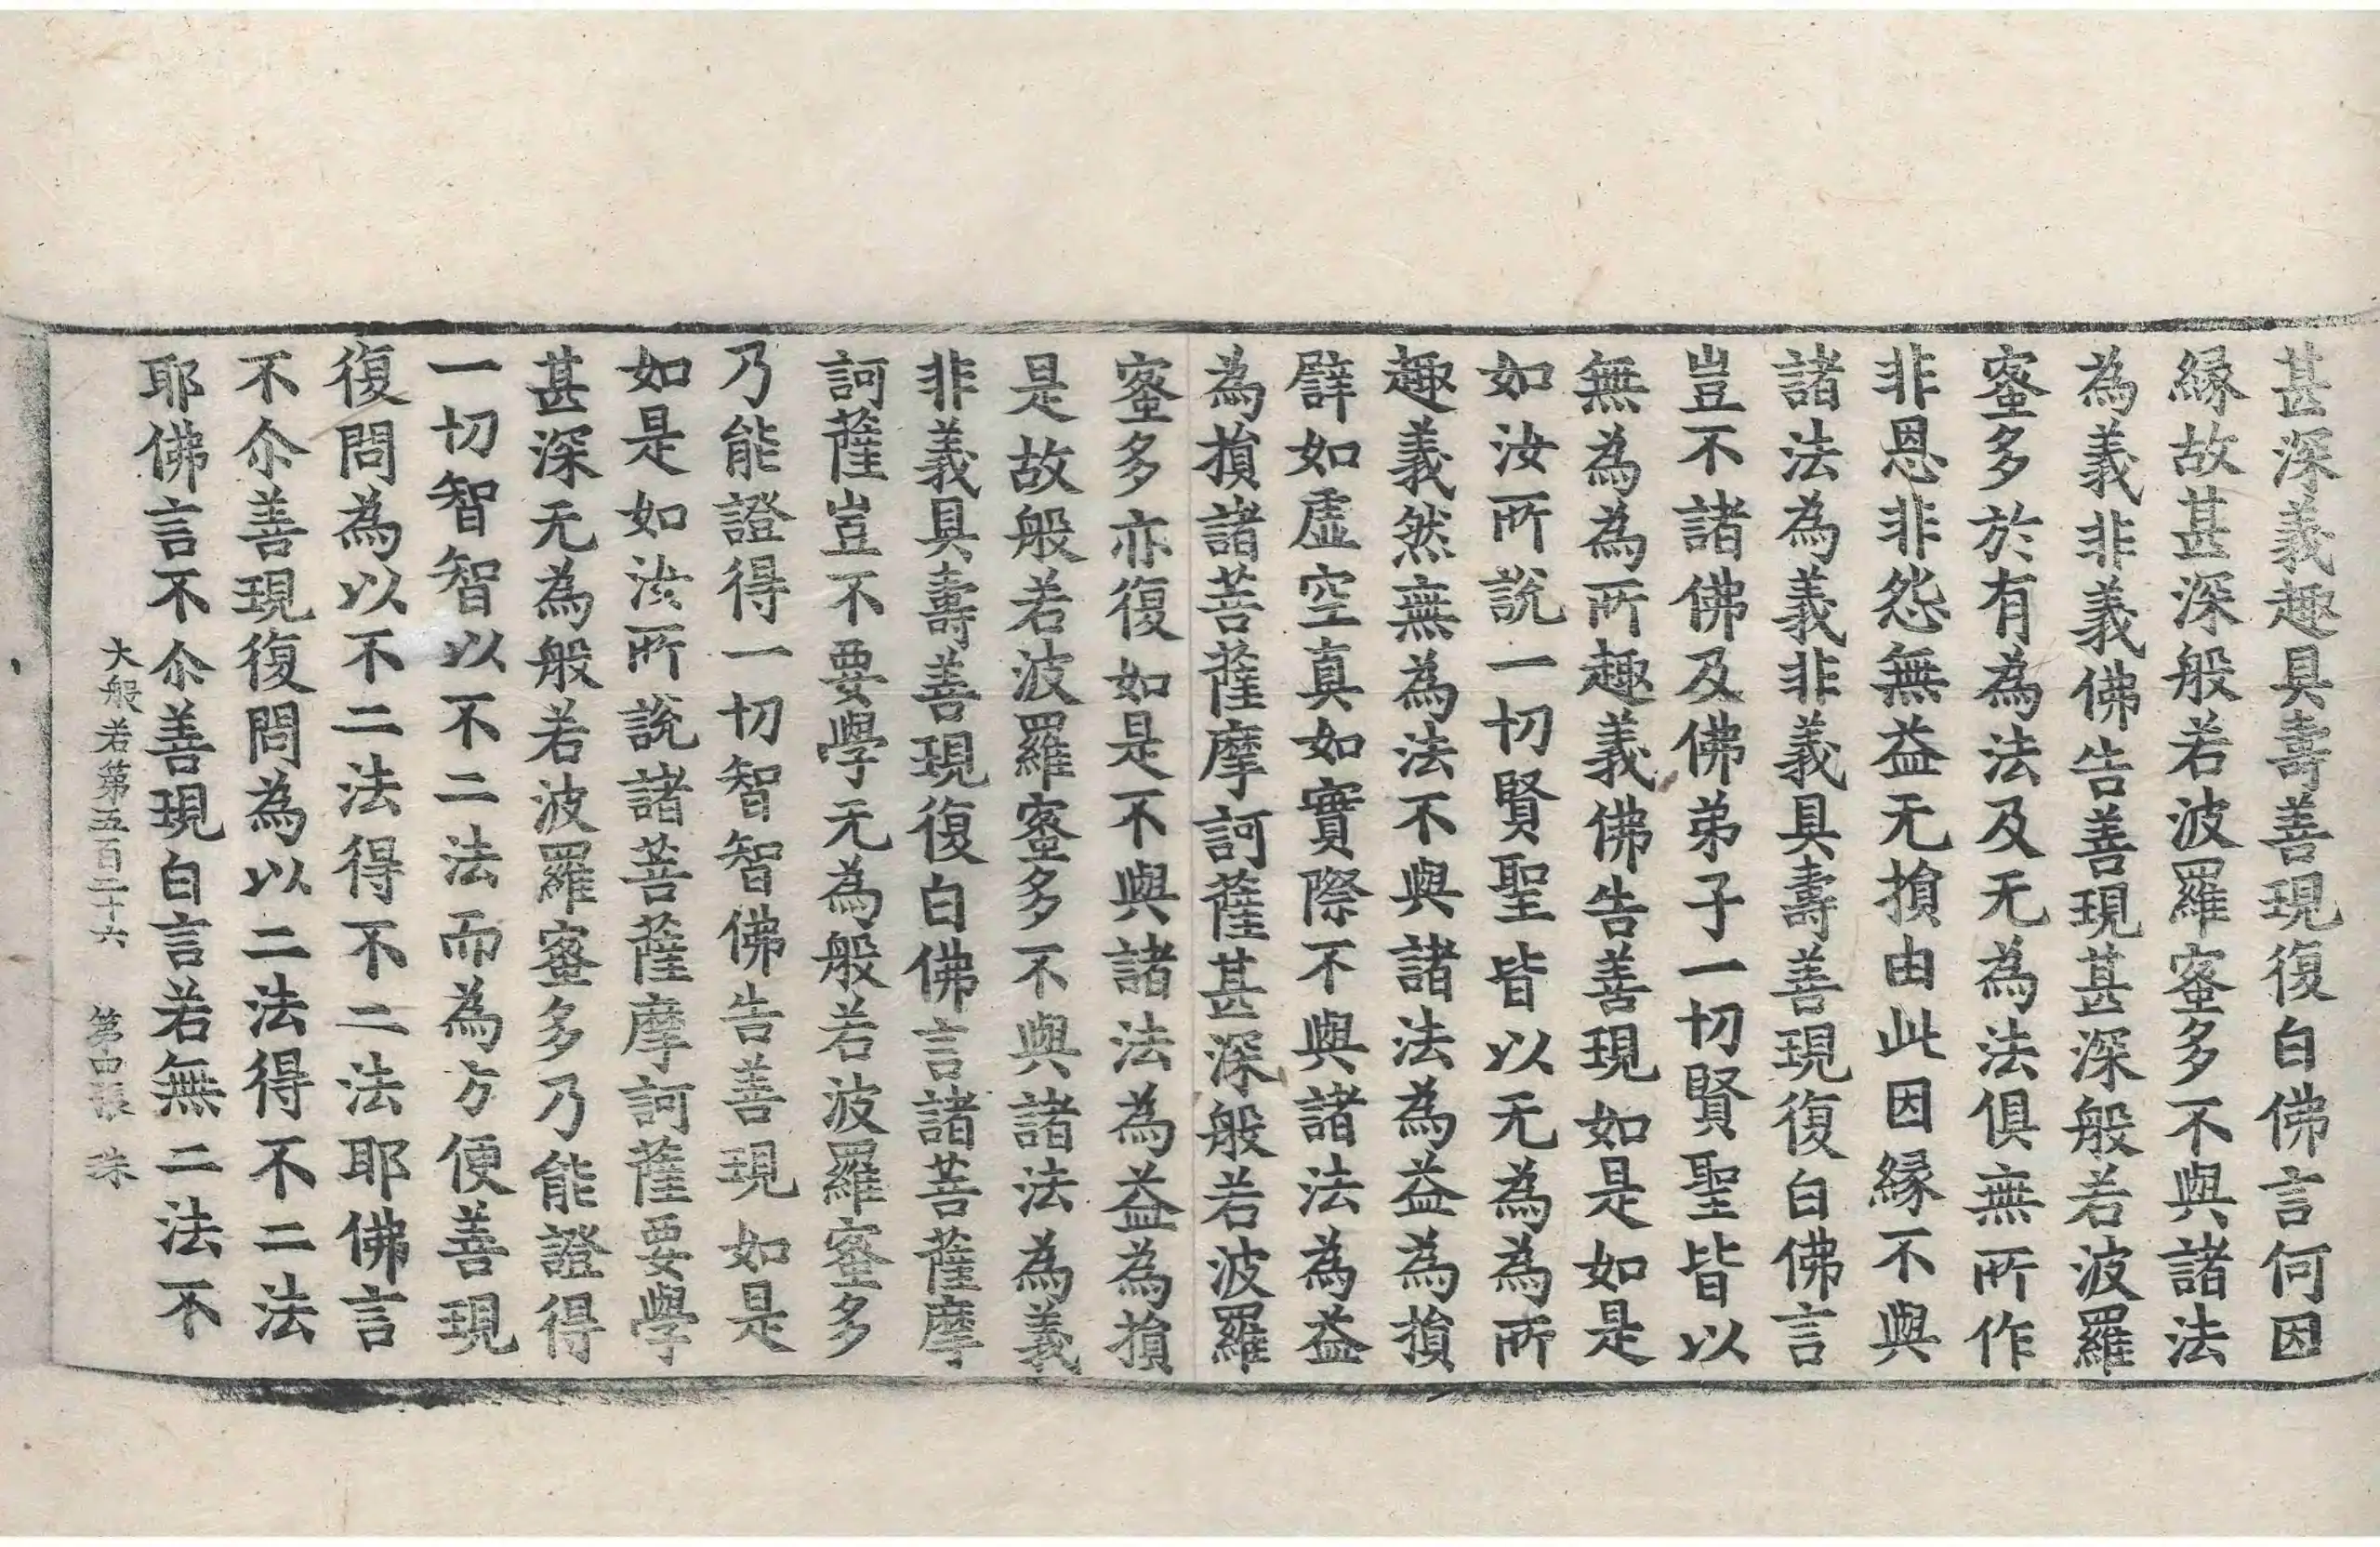 甚深義趣具壽善現復白佛言何因
縁故甚深般若波羅蜜多不與諸法
為義非義佛告善現甚深般若波羅
蜜多於有為法及无為法俱無所作
非恩非怨無益无損由此因縁不與
諸法為義非義具壽善現復白佛言
豈不諸佛及佛弟子一切賢聖皆以
無為為所趣義佛告善現如是如是
如汝所說一切賢聖皆以无為為所
趣義然無為法不與諸法為益為損
譬如虛空真如實際不與諸法為益
為損諸菩薩摩訶薩甚深般若波羅
蜜多亦復如是不與諸法為益為損
是故般若波羅蜜多不與諸法為義
非義具壽善現復白佛言諸菩薩摩
訶薩豈不要學无為般若波羅蜜多
乃能證得一切智智佛告善現如是
如是如汝所說諸菩薩摩訶薩要學
甚深无為般若波羅蜜多乃能證得
一切智智以不二法而為方便善現
復問為以不二法得不二法耶佛言
不尒善現復問為以二法得不二法
耶佛言不尒善現白言若無二法不
大般若第五百二十六 第 張